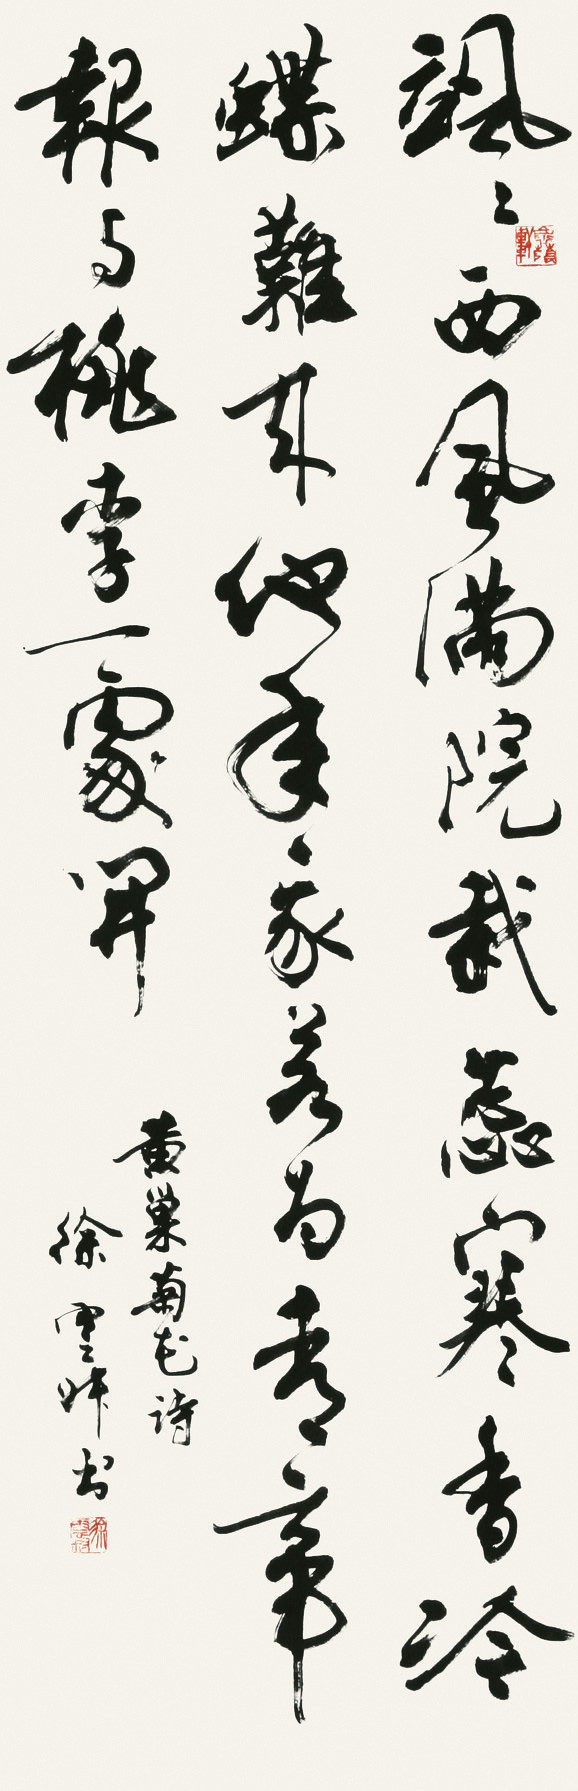 颯々西風滿院栽蕊寒香冷
蝶難來他年我若為青帝
報與桃李一處開
黄巢菊花詩
徐雲叔書